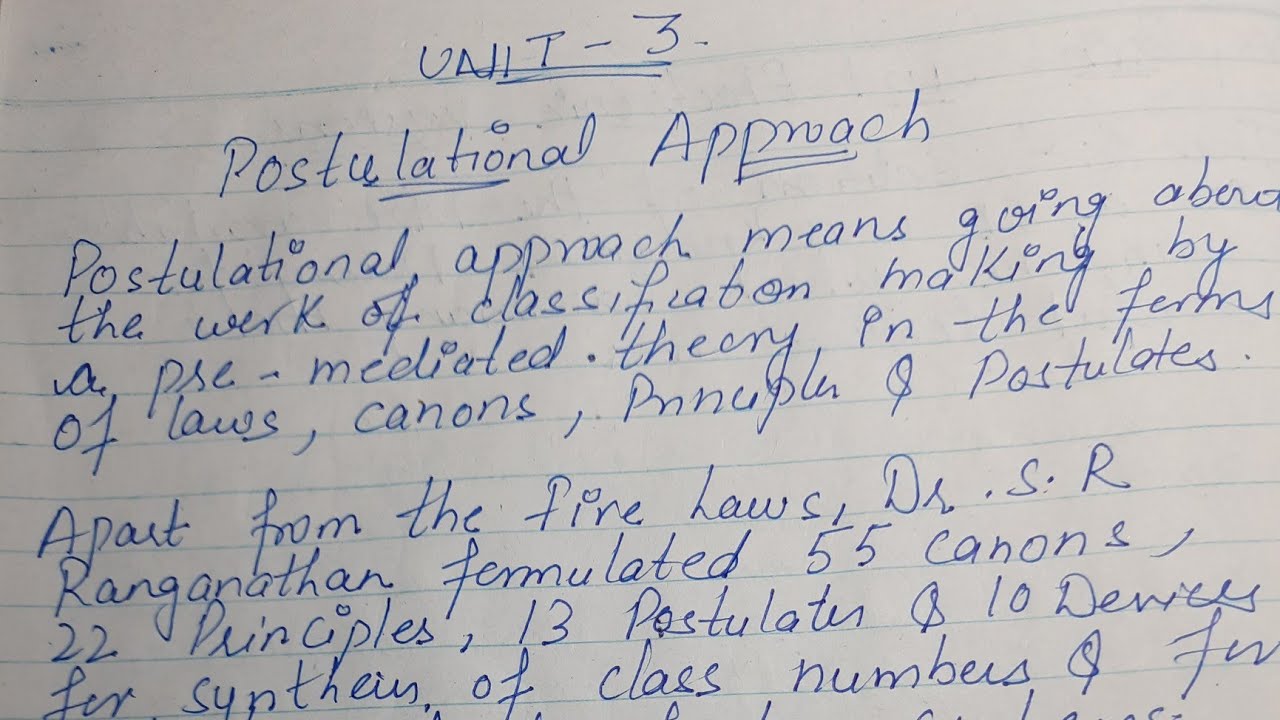 UNIT - 3.
Postulational Approach
Postulational approach means going about
the work of classification making by
a pre-mediated theory, in the terms
of laws, canons, Principles & Postulates.
Apart from the five Laws, Dr. S. R
Ranganathan formulated 55 canons,
22 Principles, 13 Postulates & 10 Devices
for synthesis of class numbers & for